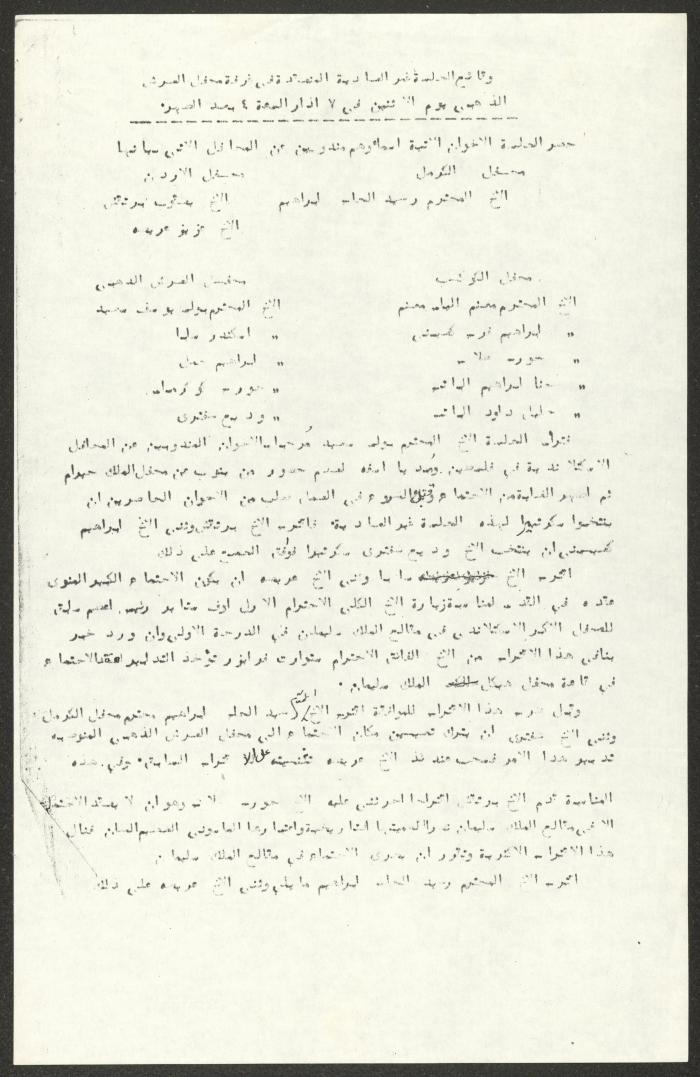 وقائع الجلسة غير العادية المنعقدة في غرفة محفل العرش
الذهبي يوم الاثنين في ٧ اذار الساعة ٤ بعد الظهر
حضر الجلسة الاخوان الاتية اسماؤهم مندوبين عن المحافل الاتي بيانها
محفل الكرمل محفل الاردن
الاخ المحترم رشيد الحاج ابراهيم الاخ يعقوب برتقش
الاخ عزيز عريضه
محفل الكوكب محفل العرش الذهبي
الاخ المحترم الاخ المحترم بولس يوسف سعيد
〃 ابراهيم 〃 اسكندر سابا
〃 جورج 〃 ابراهيم
〃 حنا ابراهيم 〃 جورج
〃 خليل داود 〃 وديع مغنوي
الجلسة الاخ المحترم بولس سعيد مرحبا بالاخوان المندوبين عن المحافل
الاسكتلاندية في فلسطين وابدى اسفه لعدم حضور من ينوب عن محفل الملك حيرام
ثم اظهر الغاية من الاجتماع في العمل طلب من الاخوان الحاضرين ان
ينتخبوا سكرتيرا لهذه الجلسة غير العادية فاقترح الاخ برتقش وثنى الاخ ابراهيم
ان ينتخب الاخ وديع مغنوي سكرتيرا فوافق الجميع على ذلك
اقترح الاخ سابا وثنى الاخ عريضه ان يكون الاجتماع الكبير المنوي
عقده في القدس لمناسبة زيارة الاخ الكلي الاحترام الارل اوف رئيس اعظم سابق
للمحفل الاكبر الاسكتلاندي في مقالع الملك سليمان في الدرجة الاولى وان ورد خبر
ينافي هذا الاقتراح من الاخ الفائق الاحترام تؤخذ التدابير لعقد الاجتماع
في قاعة محفل هيكل الملك سليمان
وقبل طرح هذا الاقتراح للموافقة اقترح الاخ المحترم رشيد الحاج ابراهيم محترم محفل الكرمل
وثنى الاخ مغنوي ان يترك تعيين مكان الاجتماع الى محفل العرش الذهبي المنوط به
تدبير هذا الامر فسحب عندئذ الاخ عريضه تثنيته على الاقتراح السابق وفي هذه
المناسبة قدم الاخ برتقش اقتراحا اخر ثنى عليه الاخ جورج وهو ان لا يعقد الاجتماع
الا في مقالع الملك سليمان نظرا لاهميتها التاريخية واعتبارها الماسوني فنال
هذا الاقتراح الاكثرية وتقرر ان يجري الاجتماع في مقالع الملك سليمان
اقترح الاخ المحترم رشيد الحاج ابراهيم ما يلي وثنى الاخ عريضه على ذلك